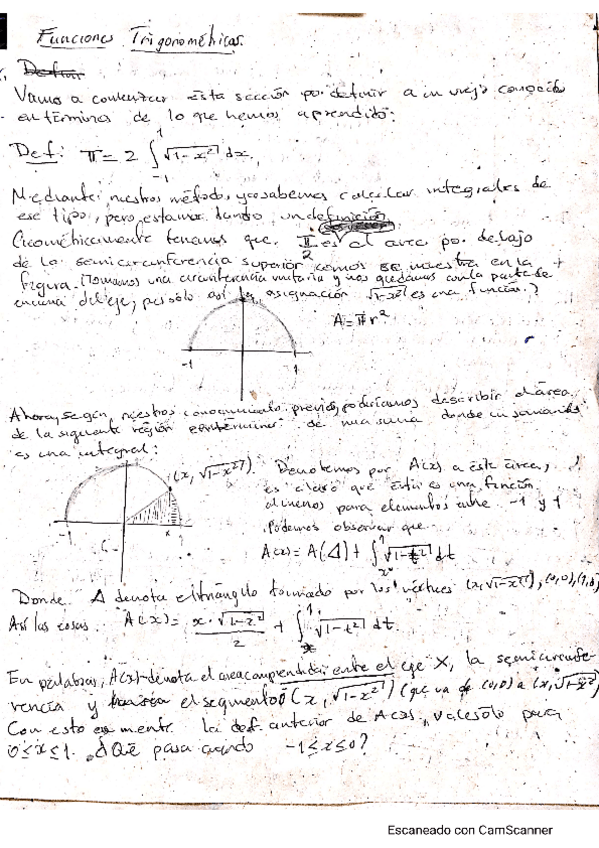 Funciones Trigonométricas.
Definir
Vamos a comenzar esta sección por definir a un viejo conocido
en términos de lo que hemos aprendido:
Def: π = 2 ∫_{-1}^{1} √(1-x²) dx,
Mediante nuestros métodos, ya sabemos calcular integrales de
ese tipo, pero estamos dando un definición
Geométricamente tenemos que π/2 es el area por debajo
de la semicircunferencia superior como se muestra en la
figura. (Tomamos una circunferencia unitaria y nos quedamos con la parte de
encima del eje, pues sólo así la asignación √(1-x²) es una función.)
A = πr²
-1
1
Ahora, según nuestros conocimientos previos, podríamos describir el área
de la siguiente región en términos de una suma donde un sumando
es una integral:
(x, √(1-x²)).
Denotemos por A(x) a este área,
es claro que esta es una función
al menos para elementos entre -1 y 1
Podemos observar que
-1
x
1
A(x) = A(Δ) + ∫_{x}^{1} √(1-t²) dt
Donde Δ denota el triángulo formado por los vértices (x, √(1-x²)), (0,0),
Así las cosas A(x) = x·√(1-x²)/2 + ∫_{x}^{1} √(1-t²) dt.
En palabras, A(x) denota el area comprendida entre el eje X, la semicircunfe-
rencia y el segmento (x, √(1-x²)) (que va de (0,0) a (x, √(1-x²))
Con esto en mente la def. anterior de A(x), vale sólo para
0≤x≤1. ¿Qué pasa cuando -1≤x≤0?
Escaneado con CamScanner